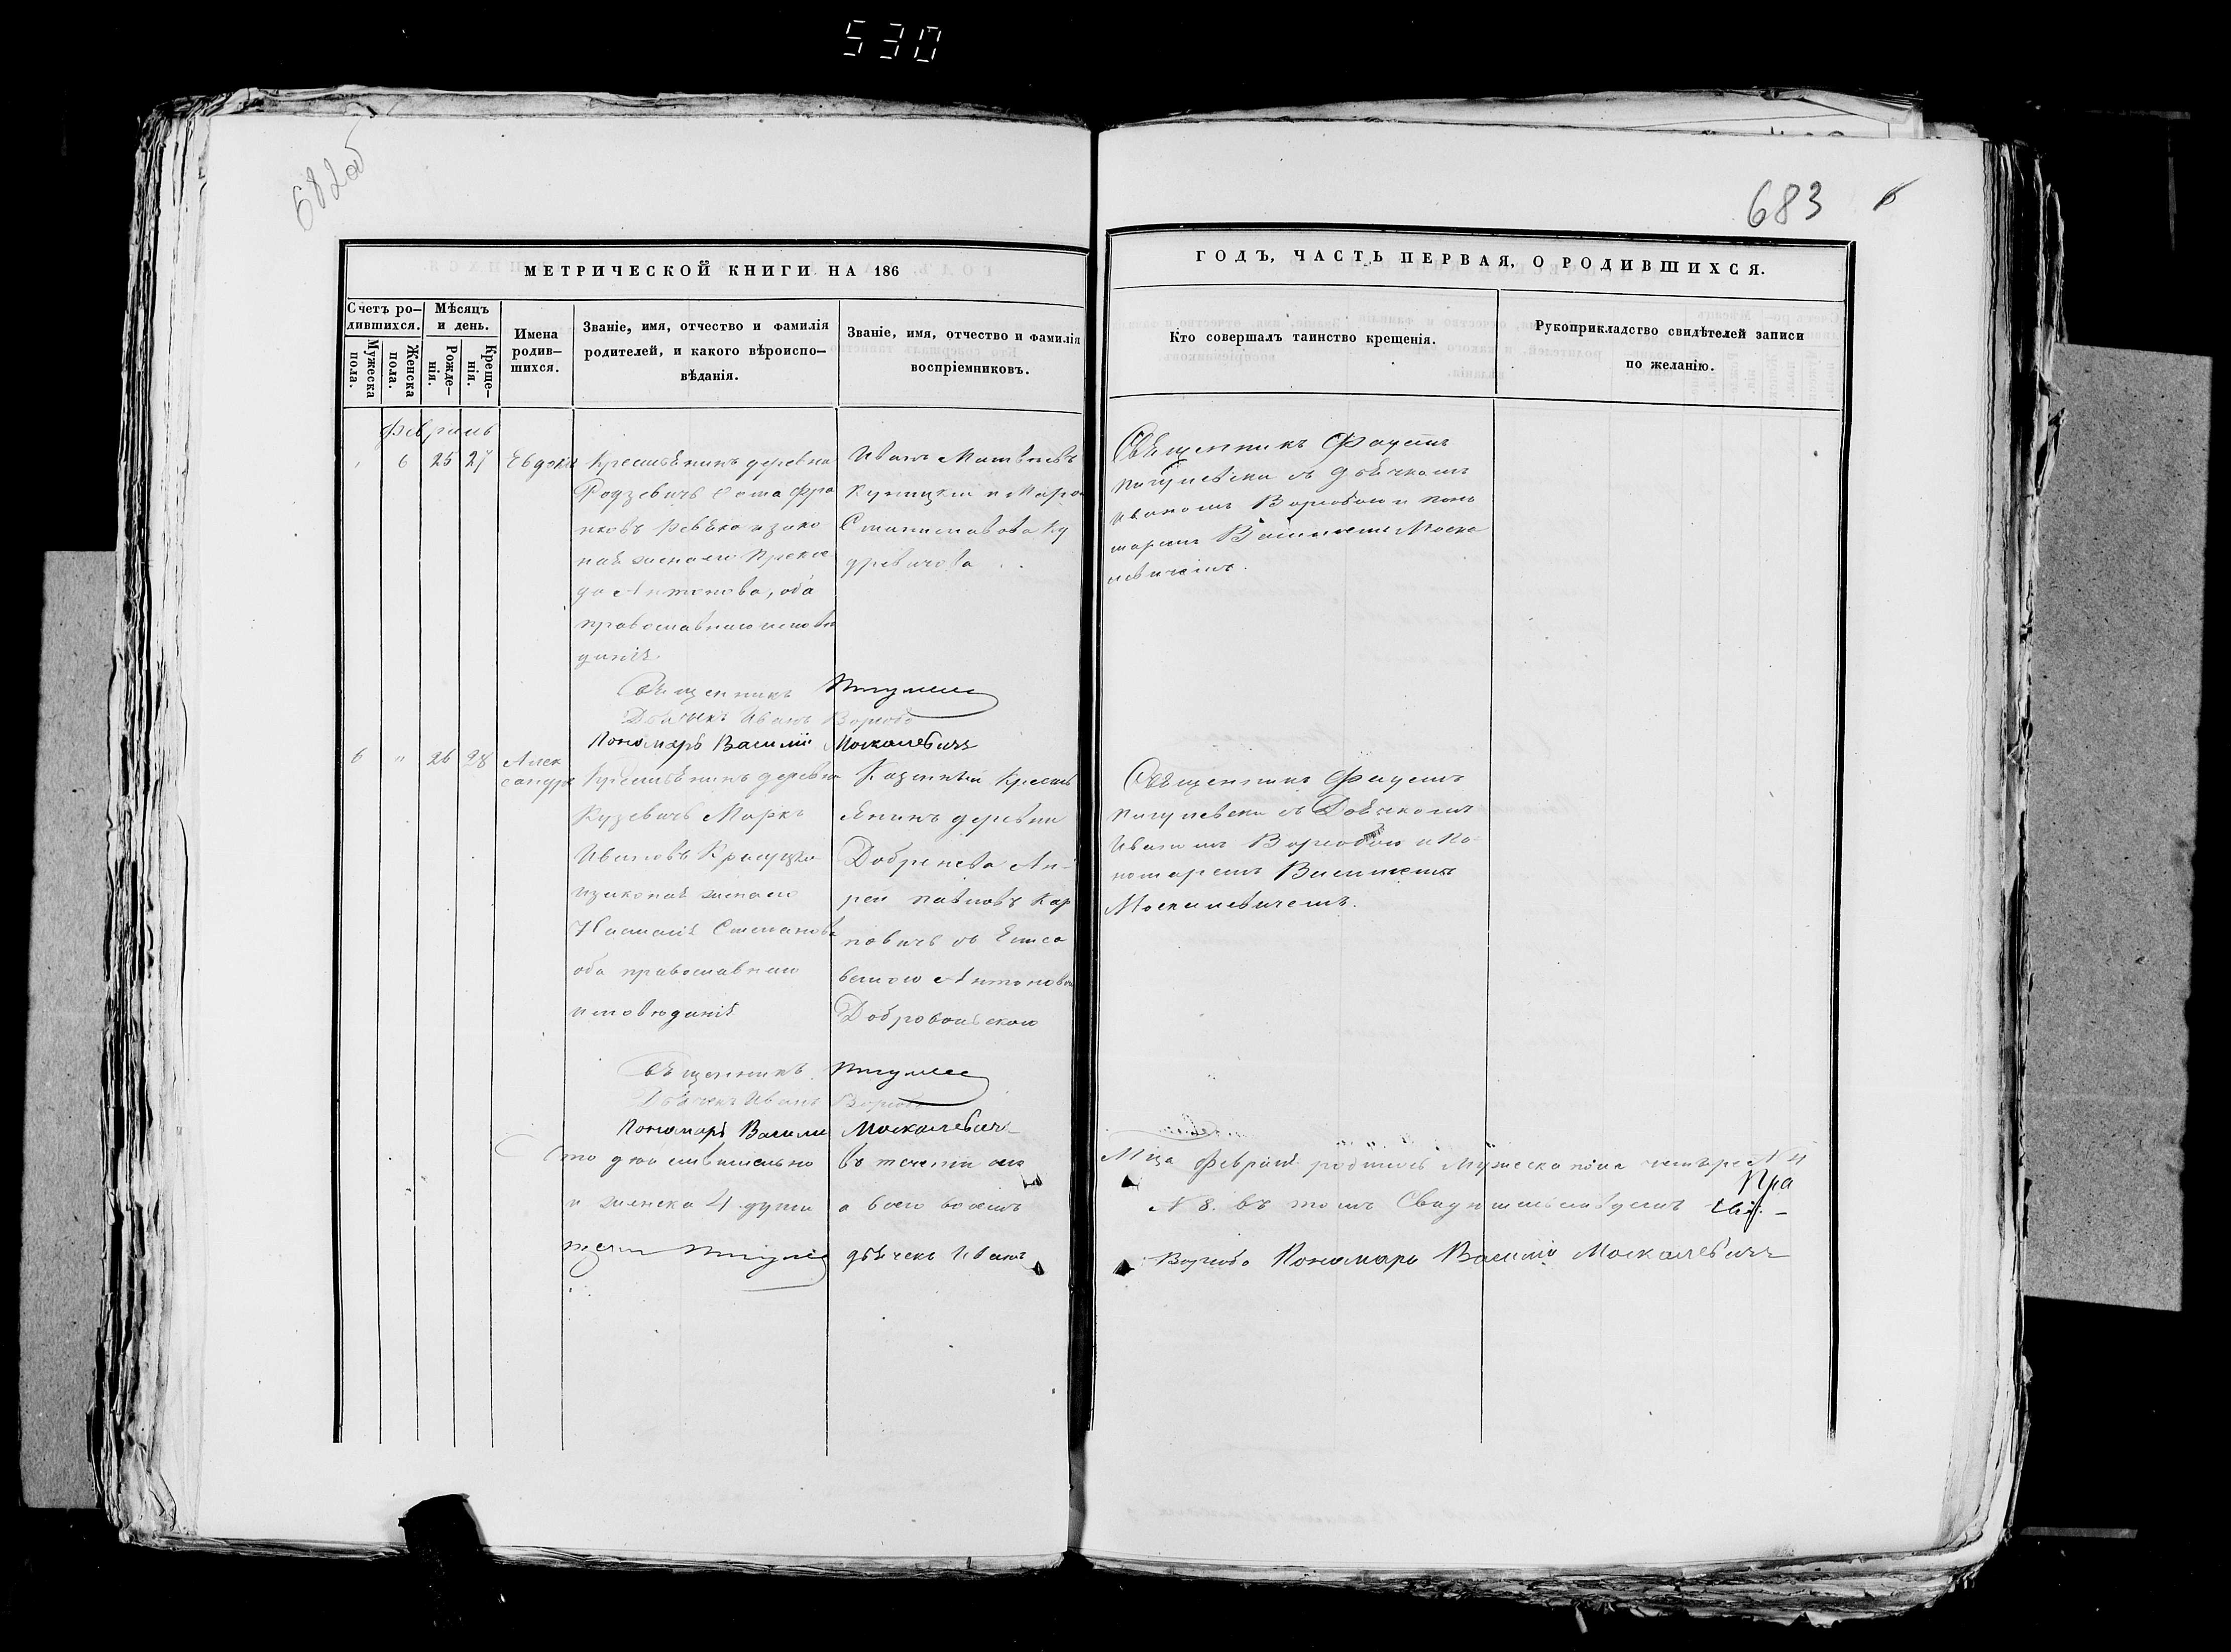 530
682об
683
МЕТРИЧЕСКОЙ КНИГИ НА 186
ГОДЪ, ЧАСТЬ ПЕРВАЯ, О РОДИВШИХСЯ.
Счетъ ро-
дившихся.
Мужеска
пола.
Женска
пола.
Мѣсяцъ
и день.
Рожде-
нія.
Креще-
нія.
Имена
родив-
шихся.
Званіе, имя, отчество и фамилія
родителей, и какого вѣроиспо-
вѣданія.
Званіе, имя, отчество и фамилія
воспріемниковъ.
Кто совершалъ таинство крещенія.
Рукоприкладство свидѣтелей записи
по желанію.
Февраль
6 25 27 Евдокія
Крестьянинъ деревни
Родзевичъ Фома Фра
нковъ и зако
ная жена его
да Антонова, оба
православнаго исповѣ
данія
Иванъ Матвѣевъ
Куницкій и Мара
Станиславова Ку
древичова
Священникъ Фаустъ
Пигулевски съ дьячкомъ
Иваномъ Воробою и поно
маремъ Василіемъ Моска
левичемъ.
Священникъ Пигулевс
Дьячекъ Иванъ
Пономарь Василій Москалевичъ
6 " 26 28 Алек
сандръ
Крестьянинъ деревни
Кузевичъ Маркъ
Ивановъ
и законая жена его
Наталія Степанова
оба православнаго
исповѣданія
Казенный кресть
янинъ деревни
Добренева Ан-
рей Павловъ Кар
повичъ съ Елиса
ветою Антоновою
Добровольскою
Священникъ Фаустъ
Пигулевски съ Дьячкомъ
Иваномъ Воробою и По-
номаремъ Василіемъ
Москалевичемъ.
Священникъ Пигулевс
Дьячекъ Иванъ
Пономарь Василій Москалевичъ
Что дѣйствительно въ теченіи сего
Мца Февраля родилось Мужеска пола четыре № 4
и женска 4 души а всего восемь
№ 8. въ томъ Свидительствуемъ
дьячекъ Иванъ
Пономарь Василій Москалевичъ